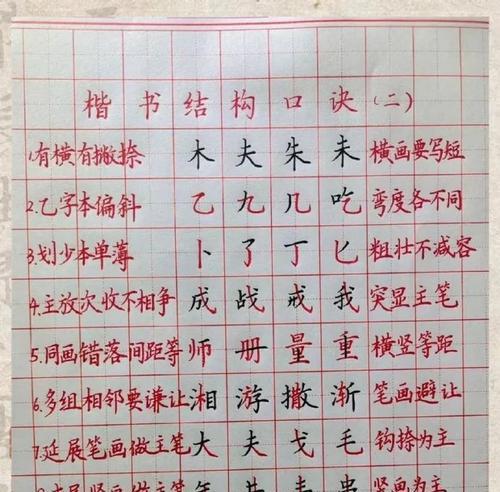 楷书结构口诀(二)
1.有横有撇捺 木 夫 朱 未 横画要写短
2.乙字本偏斜 乙 九 几 吃 弯度各不同
3.划少本单薄 卜 了 丁 匕 粗壮不减容
4.主放次收不相争 成 战 戒 我 突显主笔
5.同画错落间距等 师 册 量 重 横竖等距
6.多组相邻要谦让 湘 游 撒 渐 笔画避让
7.延展笔画做主笔 大 夫 戈 毛 钩捺为主
竖画为主